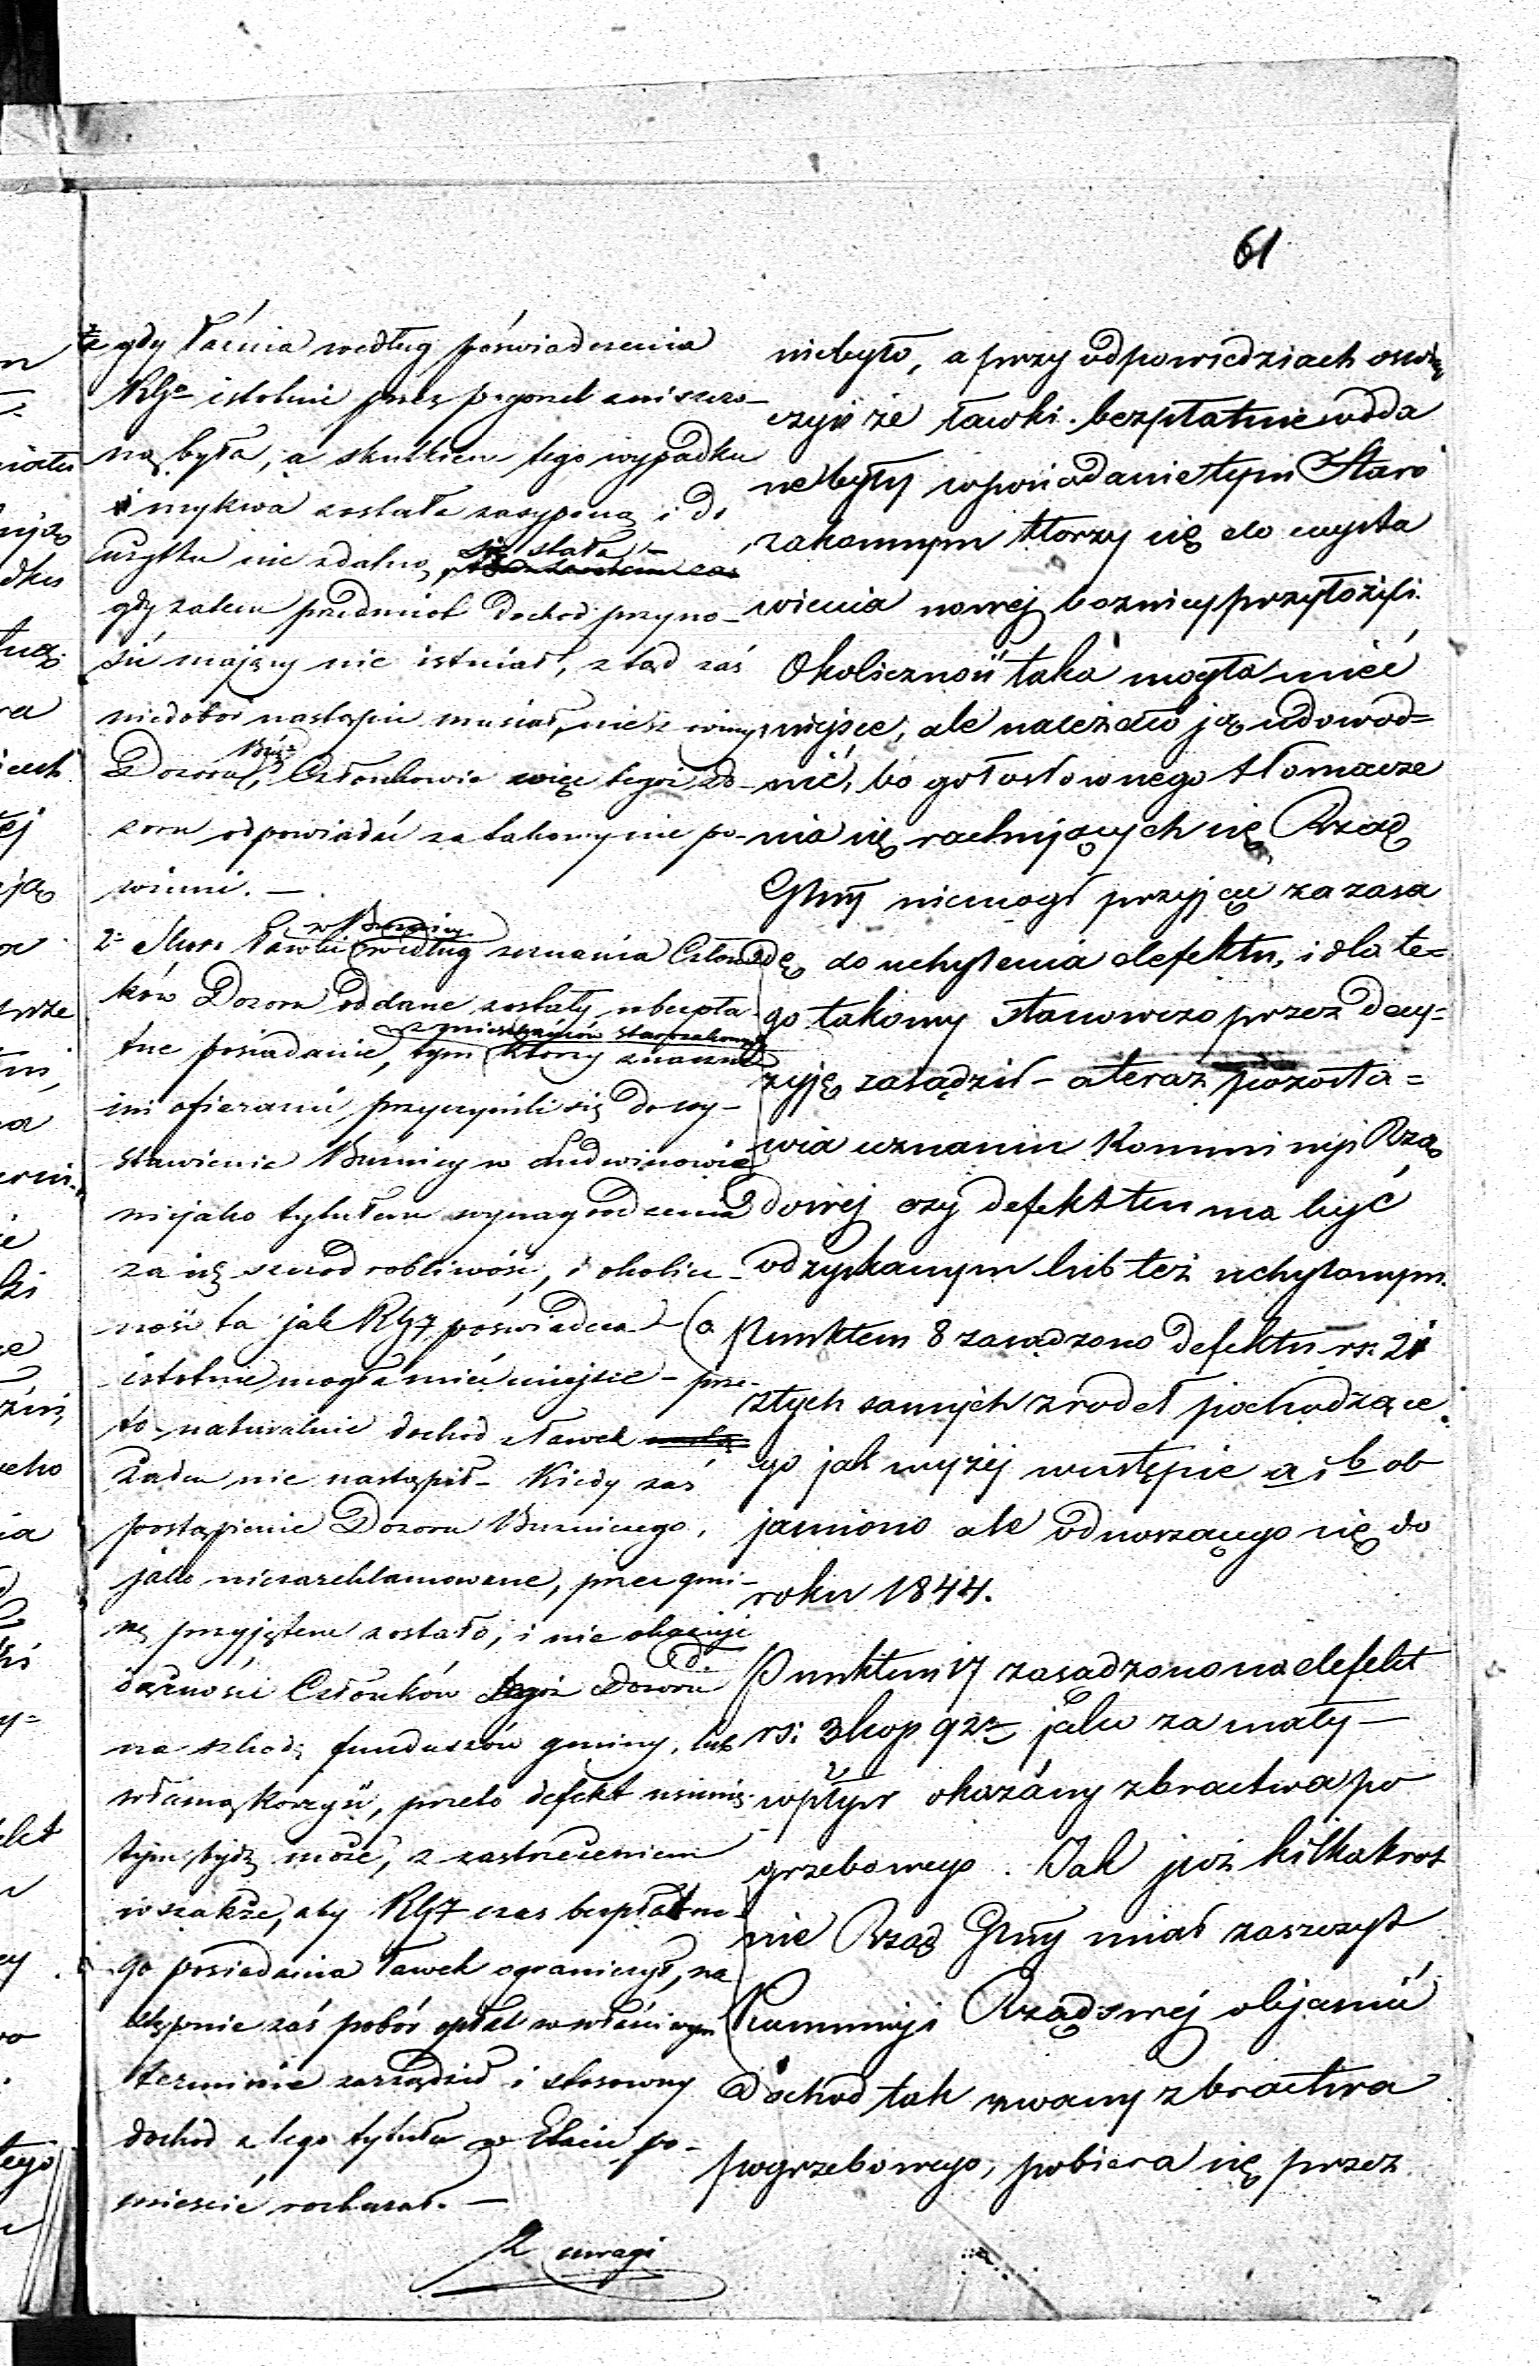 61
że gdy łaźnia według poświadczenia
istotnie przez pogorzel zniszczo-
ną była, a skutkiem tego wypadku
i mykwa została zasypaną i do
użytku nie zdatną się stała –
gdy zatem przedmiot dochod przyno-
sić mający nie istniał, z tąd zaś
niedobor nastąpić musiał, nie z winy
Dozoru Członkowie więc tegoż Do-
zoru odpowiadać za takowy nie po-
winni. –
2. ławki w Bużnicy według zeznania Człon
ków Dozoru oddane zostały w bezpła-
tne posiadanie, tym z mieszkańców starozakonnych którzy znaczne
mi ofiarami przyczynili się do wy-
stawienia Bużnicy w Ludwinowie
niejako tytułem wynagrodzenia
za ich szczodrobliwość, i okolicz-
ność ta jak poświadcza
istotnie mogła mieć miejsce – prze-
to naturalnie dochod z ławek
żaden nie nastąpił – Kiedy zaś
postąpienie Dozoru Bużniczego,
jako niezareklamowane, przez gmi-
nę przyjętem zostało, i nie okazuje
dążności Członków tegoż Dozoru
na szkodę funduszów gminy, lub
własną korzyść, przeto defekt
tym być może, z zastrzeżeniem
wszakże, aby czas bezpłatne-
go posiadania ławek ograniczył, na
stępnie zaś pobór opłat w właściwym
terminie zarządził i stosowny
dochod z tego tytułu w Etacie po-
mieścić rozkazał. –
Z uwagi
niebyło, a przy odpowiedziach
czyli że ławki bezpłatnie odda
ne były w posiadanie tym Staro
zakonnym którzy się do wysta
wienia nowej boznicy przyłożyli.
Okoliczność taka mogła mieć
miejsce, ale należało ją udowod=
nić, bo gołosłownego tłomacze
nia się rachujących się Rząd
Gbny niemogł przyjąć za zasa
dę do uchylenia defektu, i dla te=
go takowy stanowczo przez decy=
zyję zasądził – a teraz pozosta=
wia uznaniu Kommissyi Rzą
dowej czy defekt ten ma być
odzyskanym lub też uchylonym.
Punktem 8 zasądzono defektu rs. 21
z tych samych zrodeł pochodzące
go jak wyżej wustępie a i b ob
jaśniono ale odnoszącego się do
roku 1844.
Punktem 17 zasądzono na defekt
rs. 3 kop 92 jako za mały –
wpływ okazany z bractwa po
grzebowego. Jak już kilkakrot
nie Rząd Gbny miał zaszczyt
Kommissyi Rządowej objaśnić
dochod tak zwany z bractwa
pogrzebowego, pobiera się przez